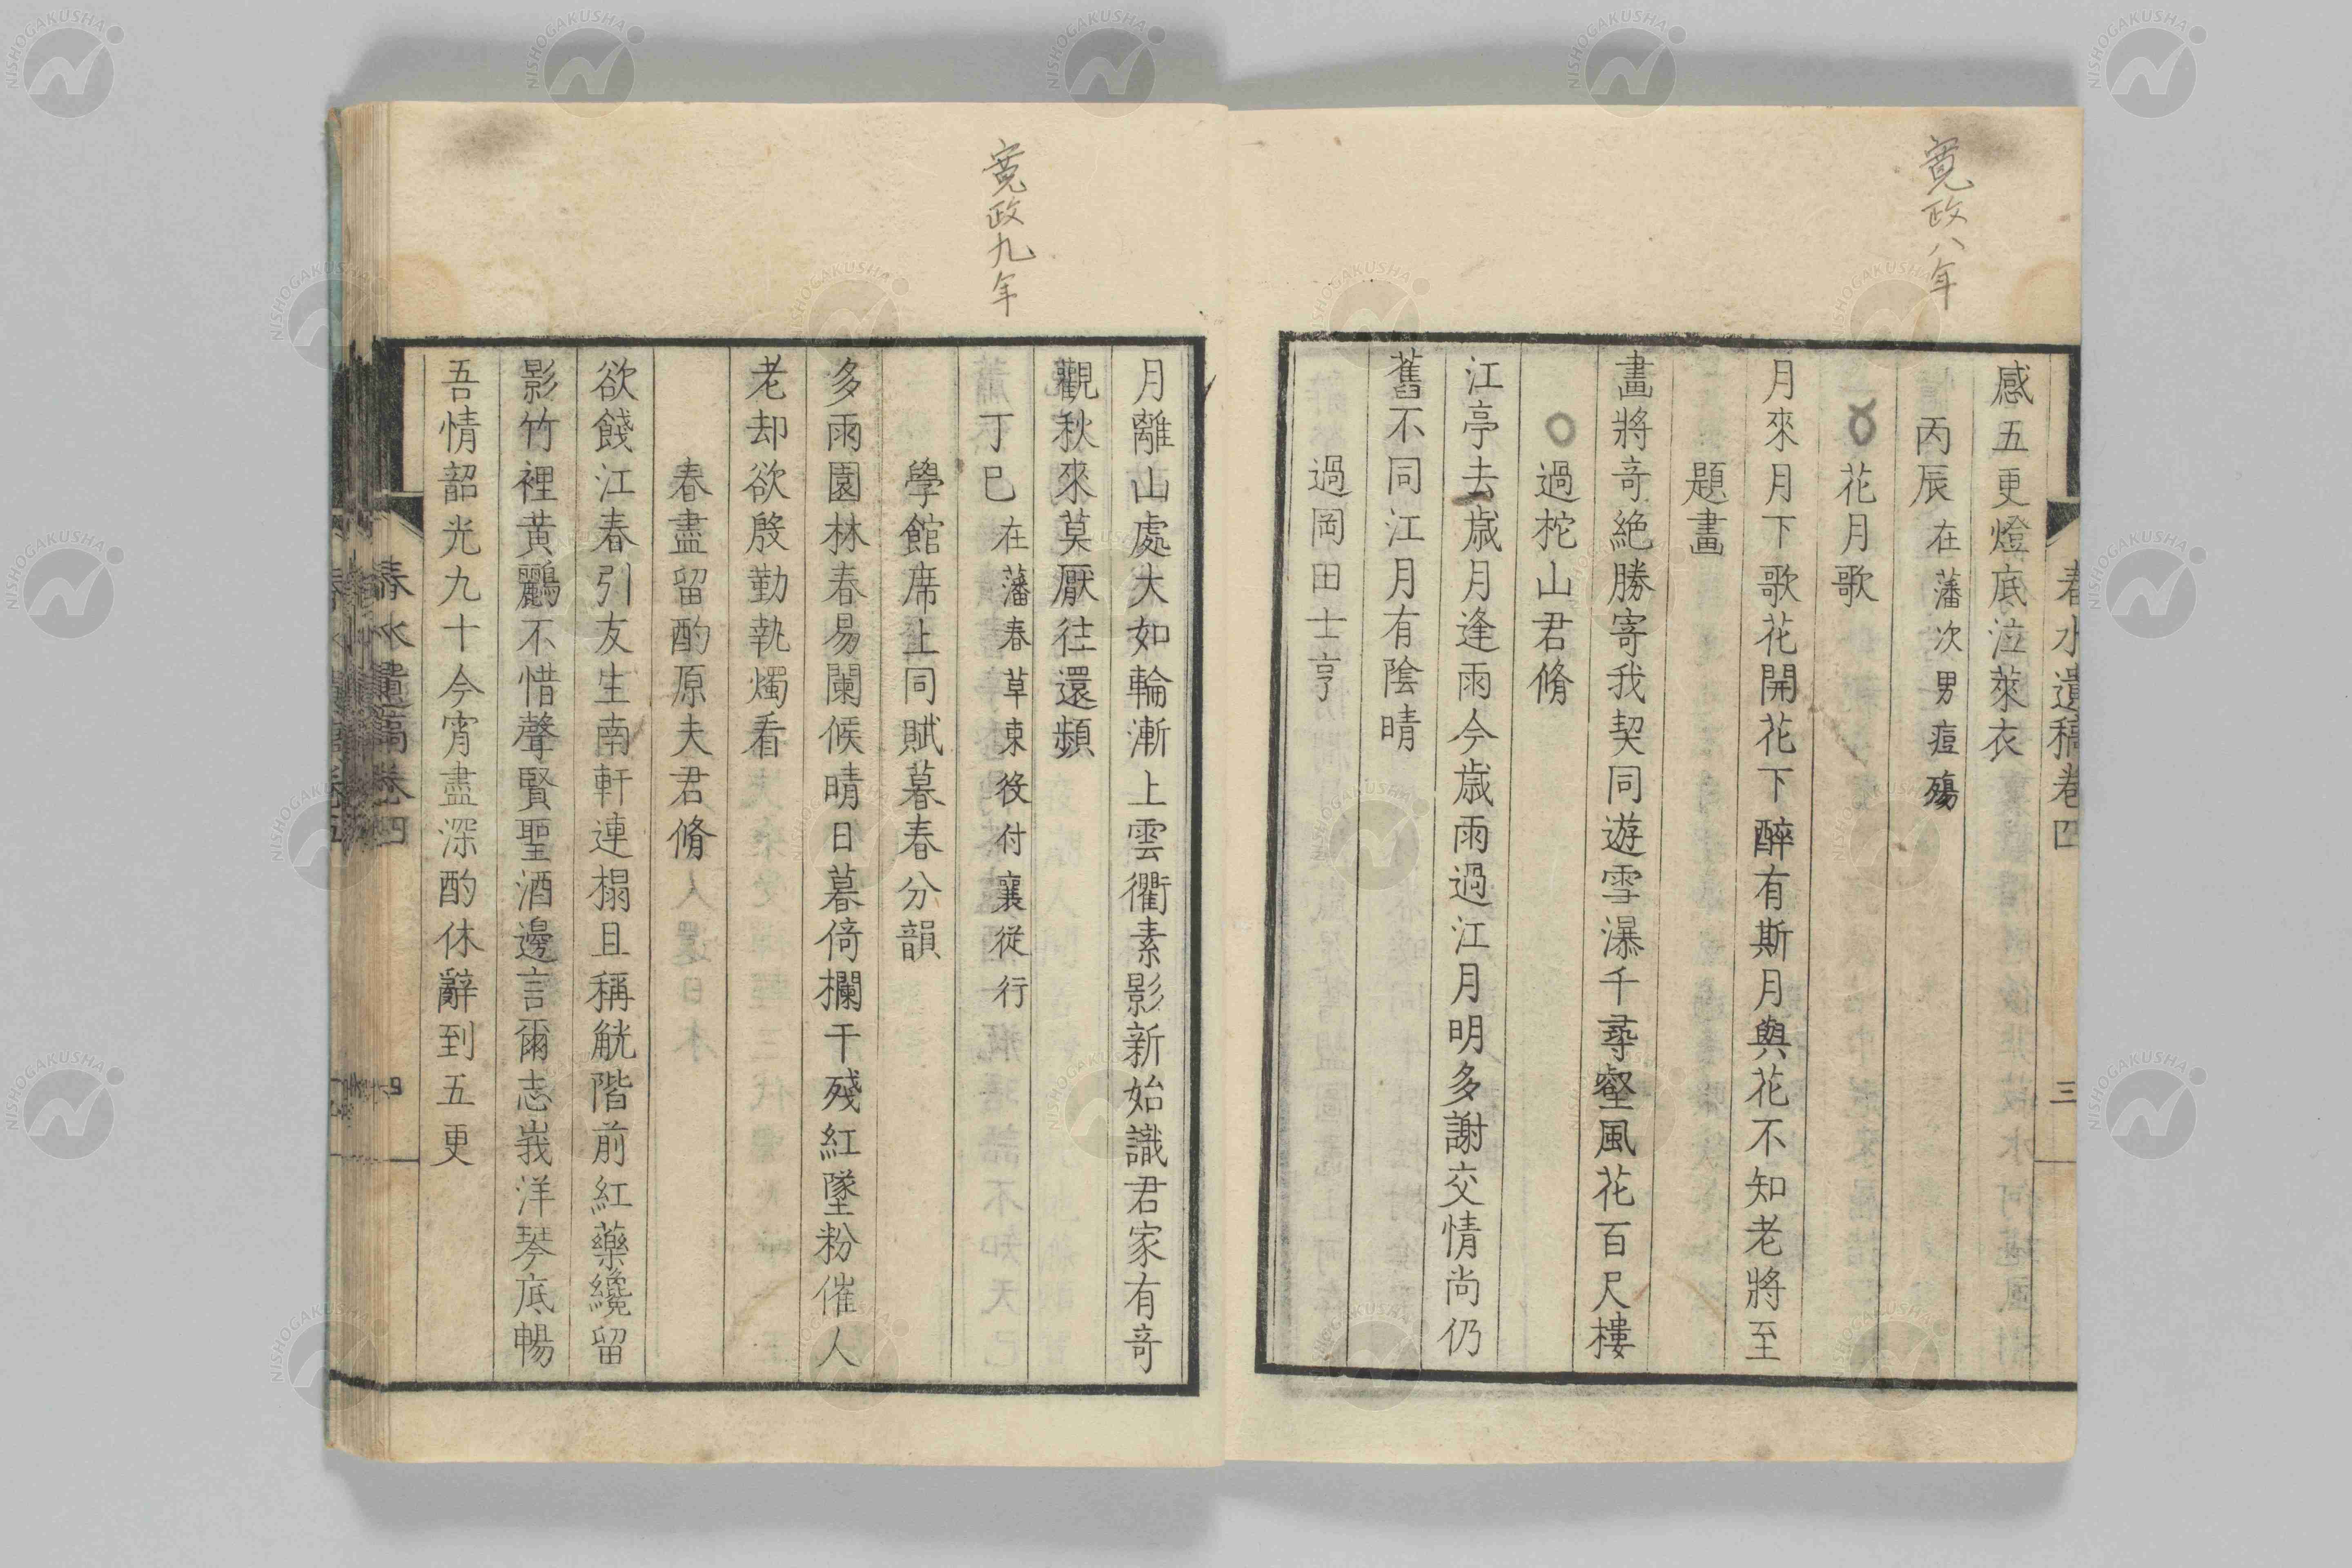 寛政八年
春水遺稿卷四
三
感五更燈底泣萊衣
丙辰在藩次男痘殤
花月歌
月來月下歌花開花下醉有斯月與花不知老將至
題畫
畫將奇絶勝寄我契同遊雪瀑千尋壑風花百尺樓
過柁山君脩
江亭去歳月逢雨今歳雨過江月明多謝交情尚仍
舊不同江月有陰晴
過岡田士亨
寛政九年
月離山處大如輪漸上雲衢素影新始識君家有奇
觀秋來莫厭往還頻
丁巳在藩春草東役付襄從行
學館席上同賦暮春分韻
多雨園林春易闌候晴日暮倚欄干殘紅墜粉催人
老却欲殷勤執燭看
春盡留酌原夫君脩
欲餞江春引友生南軒連榻且稱觥階前紅藥纔留
影竹裡黄鸝不惜聲賢聖酒邊言爾志峩洋琴底暢
吾情韶光九十今宵盡深酌休辭到五更
春水遺稿卷四
四
NISHOGAKUSHA